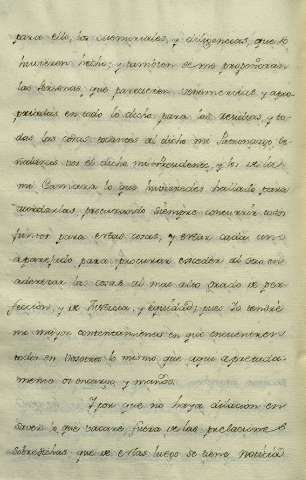 para ello, los memoriales, y diligencias, que se
huvieren hecho; y tambien se me propondran
las Personas, que parecieren veneméritas y apro
priadas en todo lo dicho para las residas, y to
das las cosas tocantes al dicho mi Patronazgo, se
ñalados vos el dicho mi Presidente, y los de la
mi Camara lo que huvieredes hallado para
acordarlas procurando siempre concurrir todos
juntos para estas cosas, y estar cada uno
aparejado para procurar exceder al otro en
aderezar las cosas al mas alto grado de per
feccion, y de Justicia, y equidad; pues Yo tendré
mi mayor contentamiento en que encuentren
todos en vosotros lo mismo que aqui apretada
mente os encargo y mando.
Y por que no haya dilacion en
saver lo que vacare fuera de las prelacias
que de estas luego se tiene noticia